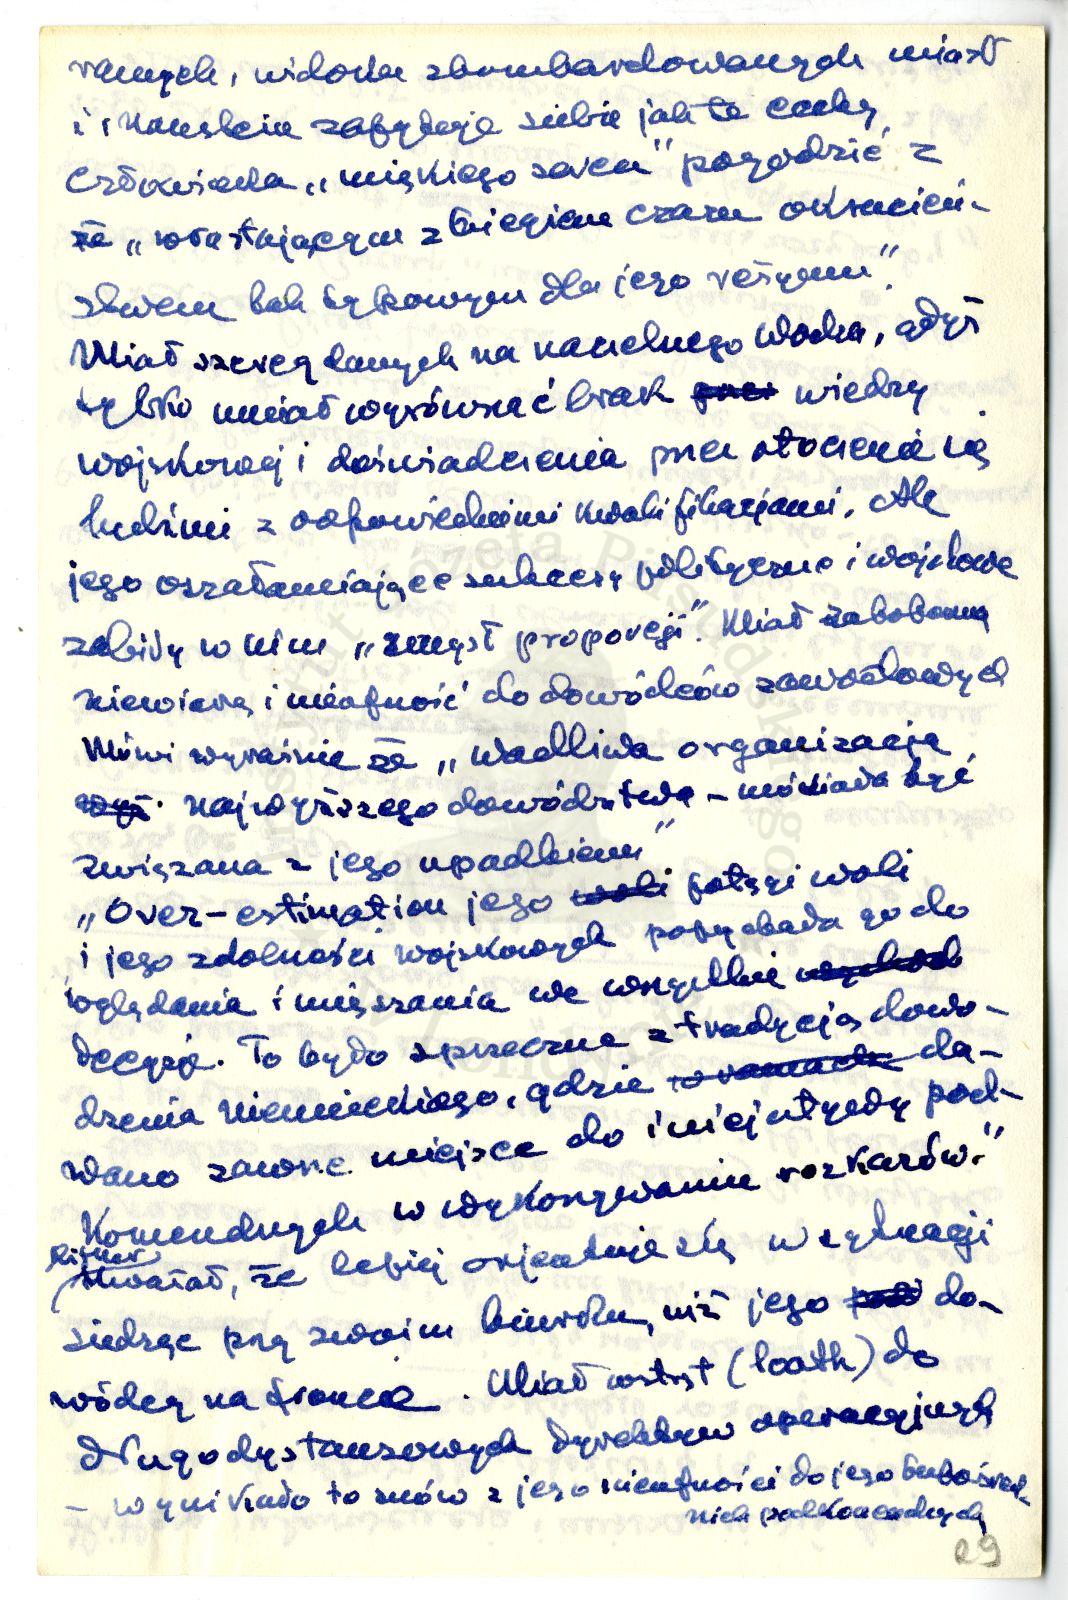 rannych, widoku zbombardowanych miast
i Manstein zapytuje siebie jak te cechy
człowieka „miękkiego serca" pogodzić z
że „wrastającym z biegiem czasu okrucień-
stwem tak typowym dla jego reżymu".
Miał szereg danych na naczelnego wodza, gdyż
tylko umiał wyrównać brak wiedzy
wojskowej i doświadczenia przez otoczenie się
ludźmi z odpowiednimi kwalifikacjami. Ale
jego oszałamiające sukcesy polityczne i wojskowe
zabiły w nim „zmysł proporcji". Miał zabobonną
niewiarę i nieufność do dowódców zawodowych
Mówi wyraźnie że „wadliwa organizacja
najwyższego dowództwa – musiała być
związana z jego upadkiem"
„Over-estimation jego potęgi woli
i jego zdolności wojskowych popychała go do
wglądania i mieszania we wszystkie
decyzje. To było sprzeczne z tradycją dowo-
dzenia niemieckiego, gdzie da-
wano zawsze miejsce do inicjatywy pod-
komendnych w wykonywaniu rozkazów."
Hitler
uważał, że lepiej orjentuje się w sytuacji
siedząc przy swoim biurku, niż jego do-
wódcy na froncie. Miał wstręt (loath) do
długodystansowych dyrektyw operacyjnych
– wynikało to znów z jego nieufności do jego bezpośred-
nich podkomendnych
29
Instytut Józefa Piłsudskiego
w Londynie